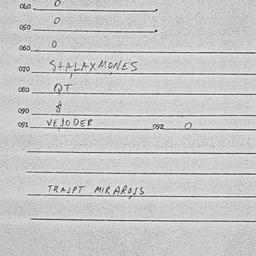 040 0
050 0
060 0
070 STALAXMONES
080 QT
090 $
091 VEJODER 092 0
TRAJPT MIRAROJS